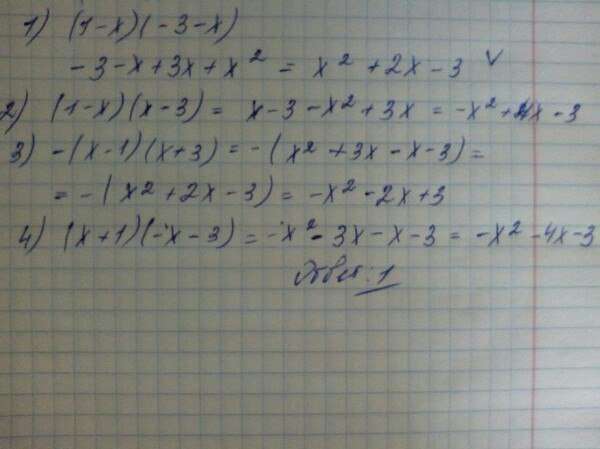 1) (1-x)(-3-x)
-3-x+3x+x² = x²+2x-3 ∨
2) (1-x)(x-3) = x-3-x²+3x = -x²+4x-3
3) -(x-1)(x+3) = -(x²+3x-x-3) =
= -(x²+2x-3) = -x²-2x+3
4) (x+1)(-x-3) = -x²-3x-x-3 = -x²-4x-3
Ответ: 1